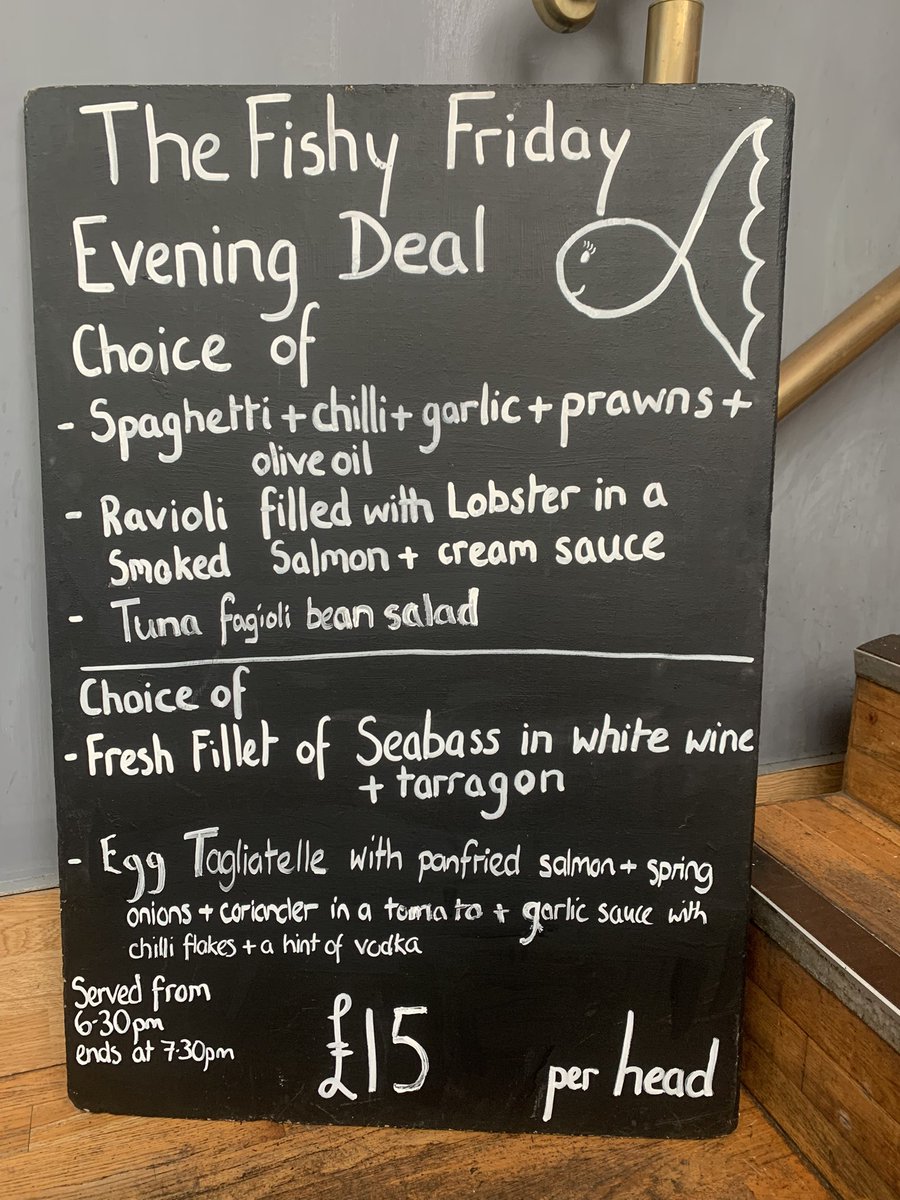 The Fishy Friday
Evening Deal
Choice of
- Spaghetti + chilli + garlic + prawns +
olive oil
- Ravioli filled with Lobster in a
Smoked Salmon + cream sauce
- Tuna fagioli bean salad
Choice of
- Fresh Fillet of Seabass in white wine
+ tarragon
- Egg Tagliatelle with panfried salmon + spring
onions + coriander in a tomato + garlic sauce with
chilli flakes + a hint of vodka
Served from
6-30pm
ends at 7.30pm
£15 per head